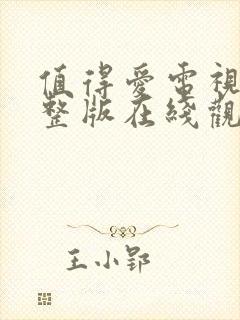 值得爱電視
整版在綫觀
王小郢